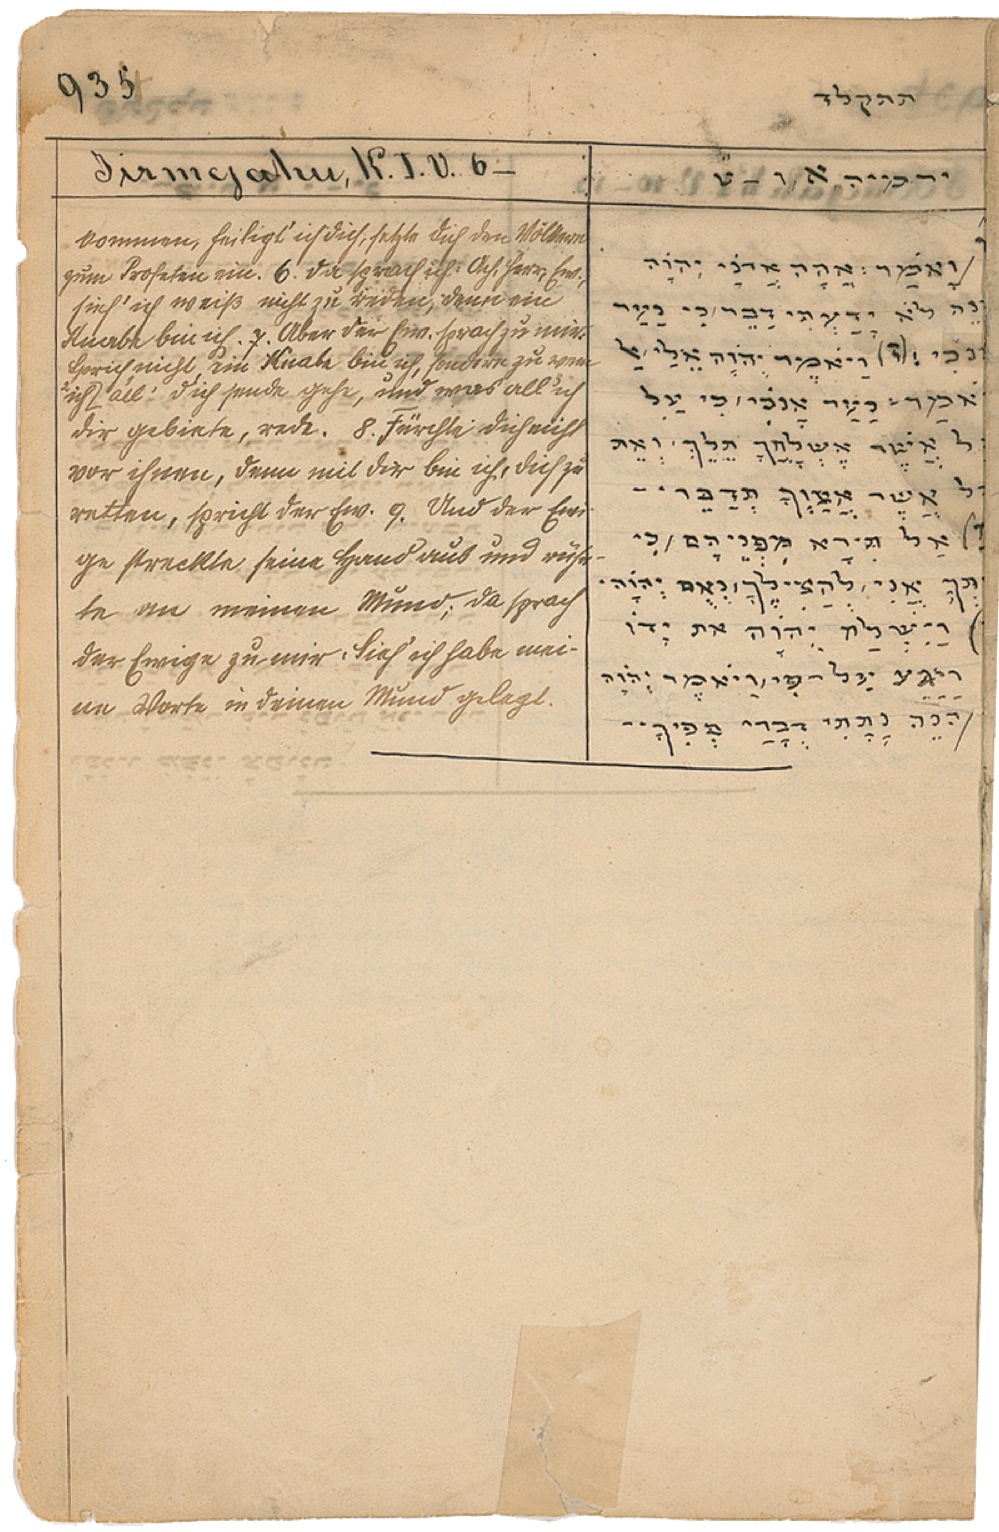 935
תתקלד
Jirmejahu, K. I. V. 6 –
kommen, heiligt' ich dich, setzte dich den Völkern
zum Profeten ein. 6. Da sprach ich: Ach, Herr, Ew.,
sieh' ich weiß nicht zu reden, denn ein
Knabe bin ich. 7. Aber der Ew. sprach zu mir:
Sprich nicht, ein Knabe bin ich, sondern zu wem
ich all' dich sende gehe, und was all' ich
dir gebiete, rede. 8. Fürchte dich nicht
vor ihnen, denn mit dir bin ich, dich zu
retten, spricht der Ew. 9. Und der Ewi-
ge streckte seine Hand aus und rühr-
te an meinen Mund; da sprach
der Ewige zu mir: Sieh' ich habe mei-
ne Worte in deinen Mund gelegt.
ירמייה א, ו – ט
וָאֹמַר: אֲהָהּ אֲדֹנָי יְהֹוָה
הִנֵּה לֹא יָדַעְתִּי דַּבֵּר, כִּי נַעַר
אָנֹכִי! (ז) וַיֹּאמֶר יְהֹוָה אֵלַי, אַל
תֹּאמַר – נַעַר אָנֹכִי, כִּי עַל
כָּל אֲשֶׁר אֶשְׁלָחֲךָ תֵּלֵךְ, וְאֵת
כָּל אֲשֶׁר אֲצַוְּךָ תְּדַבֵּר –
(ח) אַל תִּירָא מִפְּנֵיהֶם, כִּי
אִתְּךָ אֲנִי, לְהַצִּילֶךָ, נְאֻם יְהֹוָה.
(ט) וַיִּשְׁלַח יְהֹוָה אֶת יָדוֹ
וַיַּגַּע עַל פִּי, וַיֹּאמֶר יְהֹוָה
הִנֵּה נָתַתִּי דְבָרַי בְּפִיךָ –